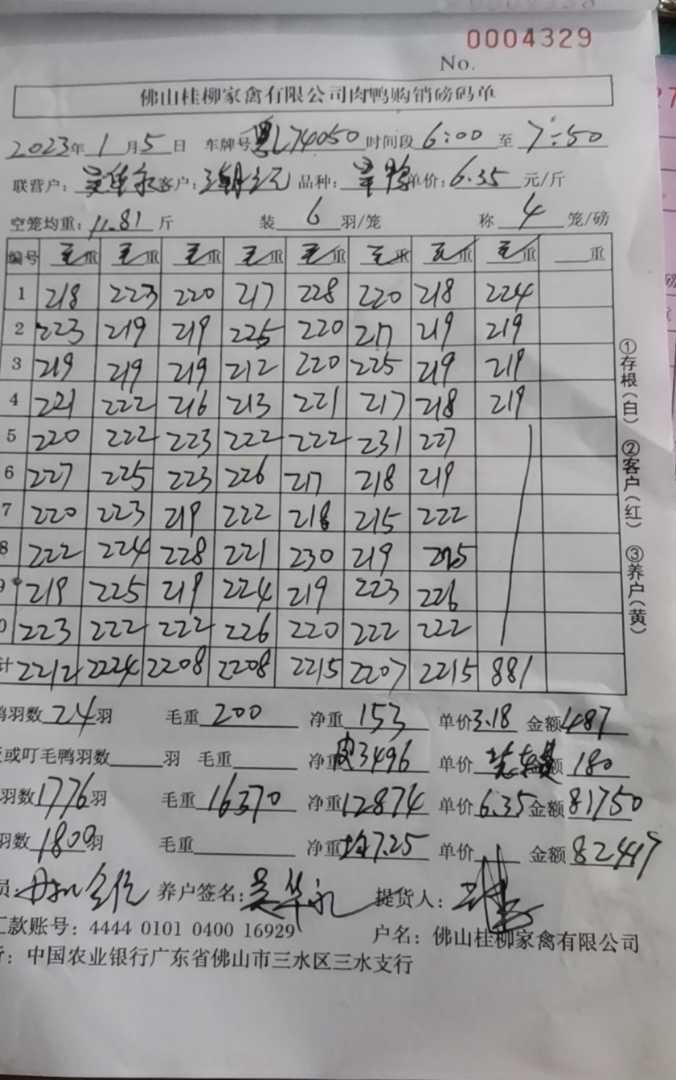 0004329
No.
佛山桂柳家禽有限公司肉鸭购销磅码单
2023年 1月 5日 车牌号 粤L74050 时间段 6:00 至 7:50
联营户: 吴华 客户: 品种: 单价: 6.35 元/斤
空笼均重: 11.81 斤 装 6 羽/笼 称 4 笼/磅
编号 毛重 毛重 毛重 毛重 毛重 毛重 毛重 毛重 重
1 218 223 220 217 228 220 218 224
2 223 219 219 225 220 217 219 219
3 219 219 219 212 220 225 219 219
4 221 222 216 213 221 217 218 219
5 220 222 223 222 222 231 227
6 227 225 223 226 217 218 219
7 220 223 219 222 218 215 222
8 222 224 228 221 230 219 225
219 225 219 224 219 223 226
0 223 222 222 226 220 222 222
计 2212 2224 2208 2208 2215 2207 2215 881
鸭羽数 24羽 毛重 200 净重 153 单价 3.18 金额 487
或叮毛鸭羽数 羽 毛重 净重 皮3496 单价 金额 180
羽数 1776羽 毛重 16370 净重 12874 单价 6.35 金额 81750
羽数 1800羽 毛重 净重 均7.25 单价 金额 82417
员: 养户签名: 吴华 提货人:
汇款账号: 4444 0101 0400 16929 户名: 佛山桂柳家禽有限公司
行: 中国农业银行广东省佛山市三水区三水支行
①存根(白) ②客户(红) ③养户(黄)